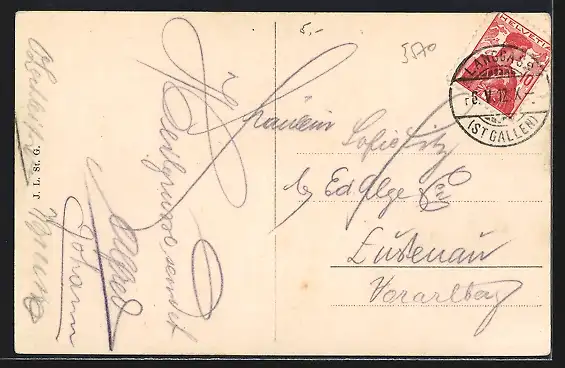 5.-
5570
HELVETIA
10
LANGGASSE
6.V.12.
(ST GALLEN)
Fräulein
Sofie Fitz
by Ed Alge
Lustenau
Vorarlberg
Herzl grüsse sendet
Alfred
Johann
J. L. St. G.